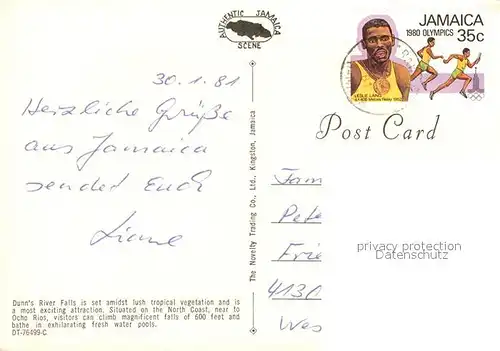 AUTHENTIC JAMAICA
SCENE
JAMAICA
1980 OLYMPICS
35c
LESLIE LAING
Post Card
30.1.81
Herzliche Grüße
aus Jamaica
sendet Euch
Liane
The Novelty Trading Co., Ltd., Kingston, Jamaica
Fam
Pete
Frie
4130
Wes
privacy protection
Datenschutz
Dunn's River Falls is set amidst lush tropical vegetation and is
a most exciting attraction. Situated on the North Coast, near to
Ocho Rios, visitors can climb magnificent falls of 600 feet and
bathe in exhilarating fresh water pools.
DT-76499-C.